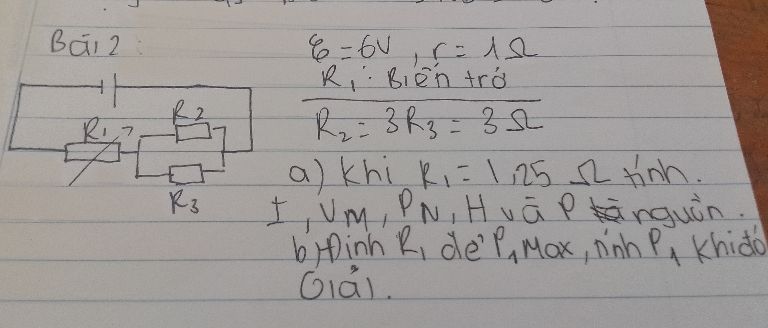 Bài 2:
ℰ = 6V, r = 1Ω
R₁: Biến trở
R₂ = 3R₃ = 3Ω
R₁
R₂
R₃
a) Khi R₁ = 1,25 Ω tính.
I, UM, PN, H và P nguồn.
b) Định R₁ để P₁ Max, tính P₁ khi đó
Giải.